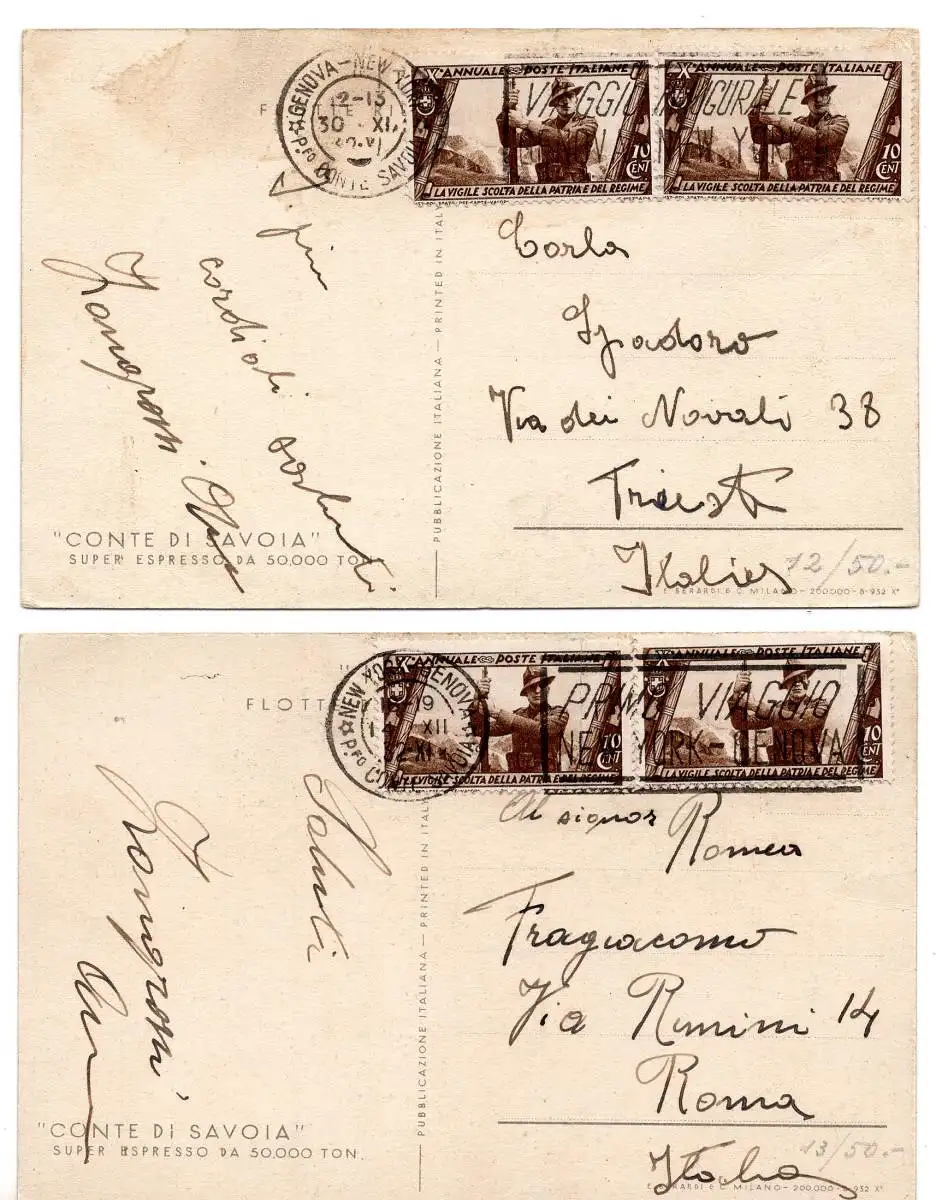 F
P. ☆ GENOVA - NEW YORK
12-13
30 . XI.
32 XI
Pfo CONTE SAVOIA
X° ANNUALE POSTE ITALIANE X° ANNUALE POSTE ITALIANE
VIAGGIO INAUGURALE
GENOVA NEW YORK
10 CENT 10 CENT
LA VIGILE SCOLTA DELLA PATRIA E DEL REGIME LA VIGILE SCOLTA DELLA PATRIA E DEL REGIME
I più
cordiali
saluti
Carla
Spadoro
Via dei Navali 38
Trieste
Italia
"CONTE DI SAVOIA"
SUPER ESPRESSO DA 50.000 TON.
PUBBLICAZIONE ITALIANA — PRINTED IN ITALY
12/50.-
E. BERARDI & C. MILANO - 200.000 - 8-932 X°
FLOTT
P. ☆ NEW YORK - GENOVA
19
14 XII
32-XI
Pfo CONTE SAVOIA
X° ANNUALE POSTE ITALIANE X° ANNUALE POSTE ITALIANE
PRIMO VIAGGIO
NEW YORK - GENOVA
10 CENT 10 CENT
LA VIGILE SCOLTA DELLA PATRIA E DEL REGIME LA VIGILE SCOLTA DELLA PATRIA E DEL REGIME
Saluti
Al signor Romeo
Fragiacomo
Via Rimini 14
Roma
Italia
"CONTE DI SAVOIA"
SUPER ESPRESSO DA 50.000 TON.
PUBBLICAZIONE ITALIANA — PRINTED IN ITALY
13/50.-
E. BERARDI & C. MILANO - 200.000 - 8-932 X°